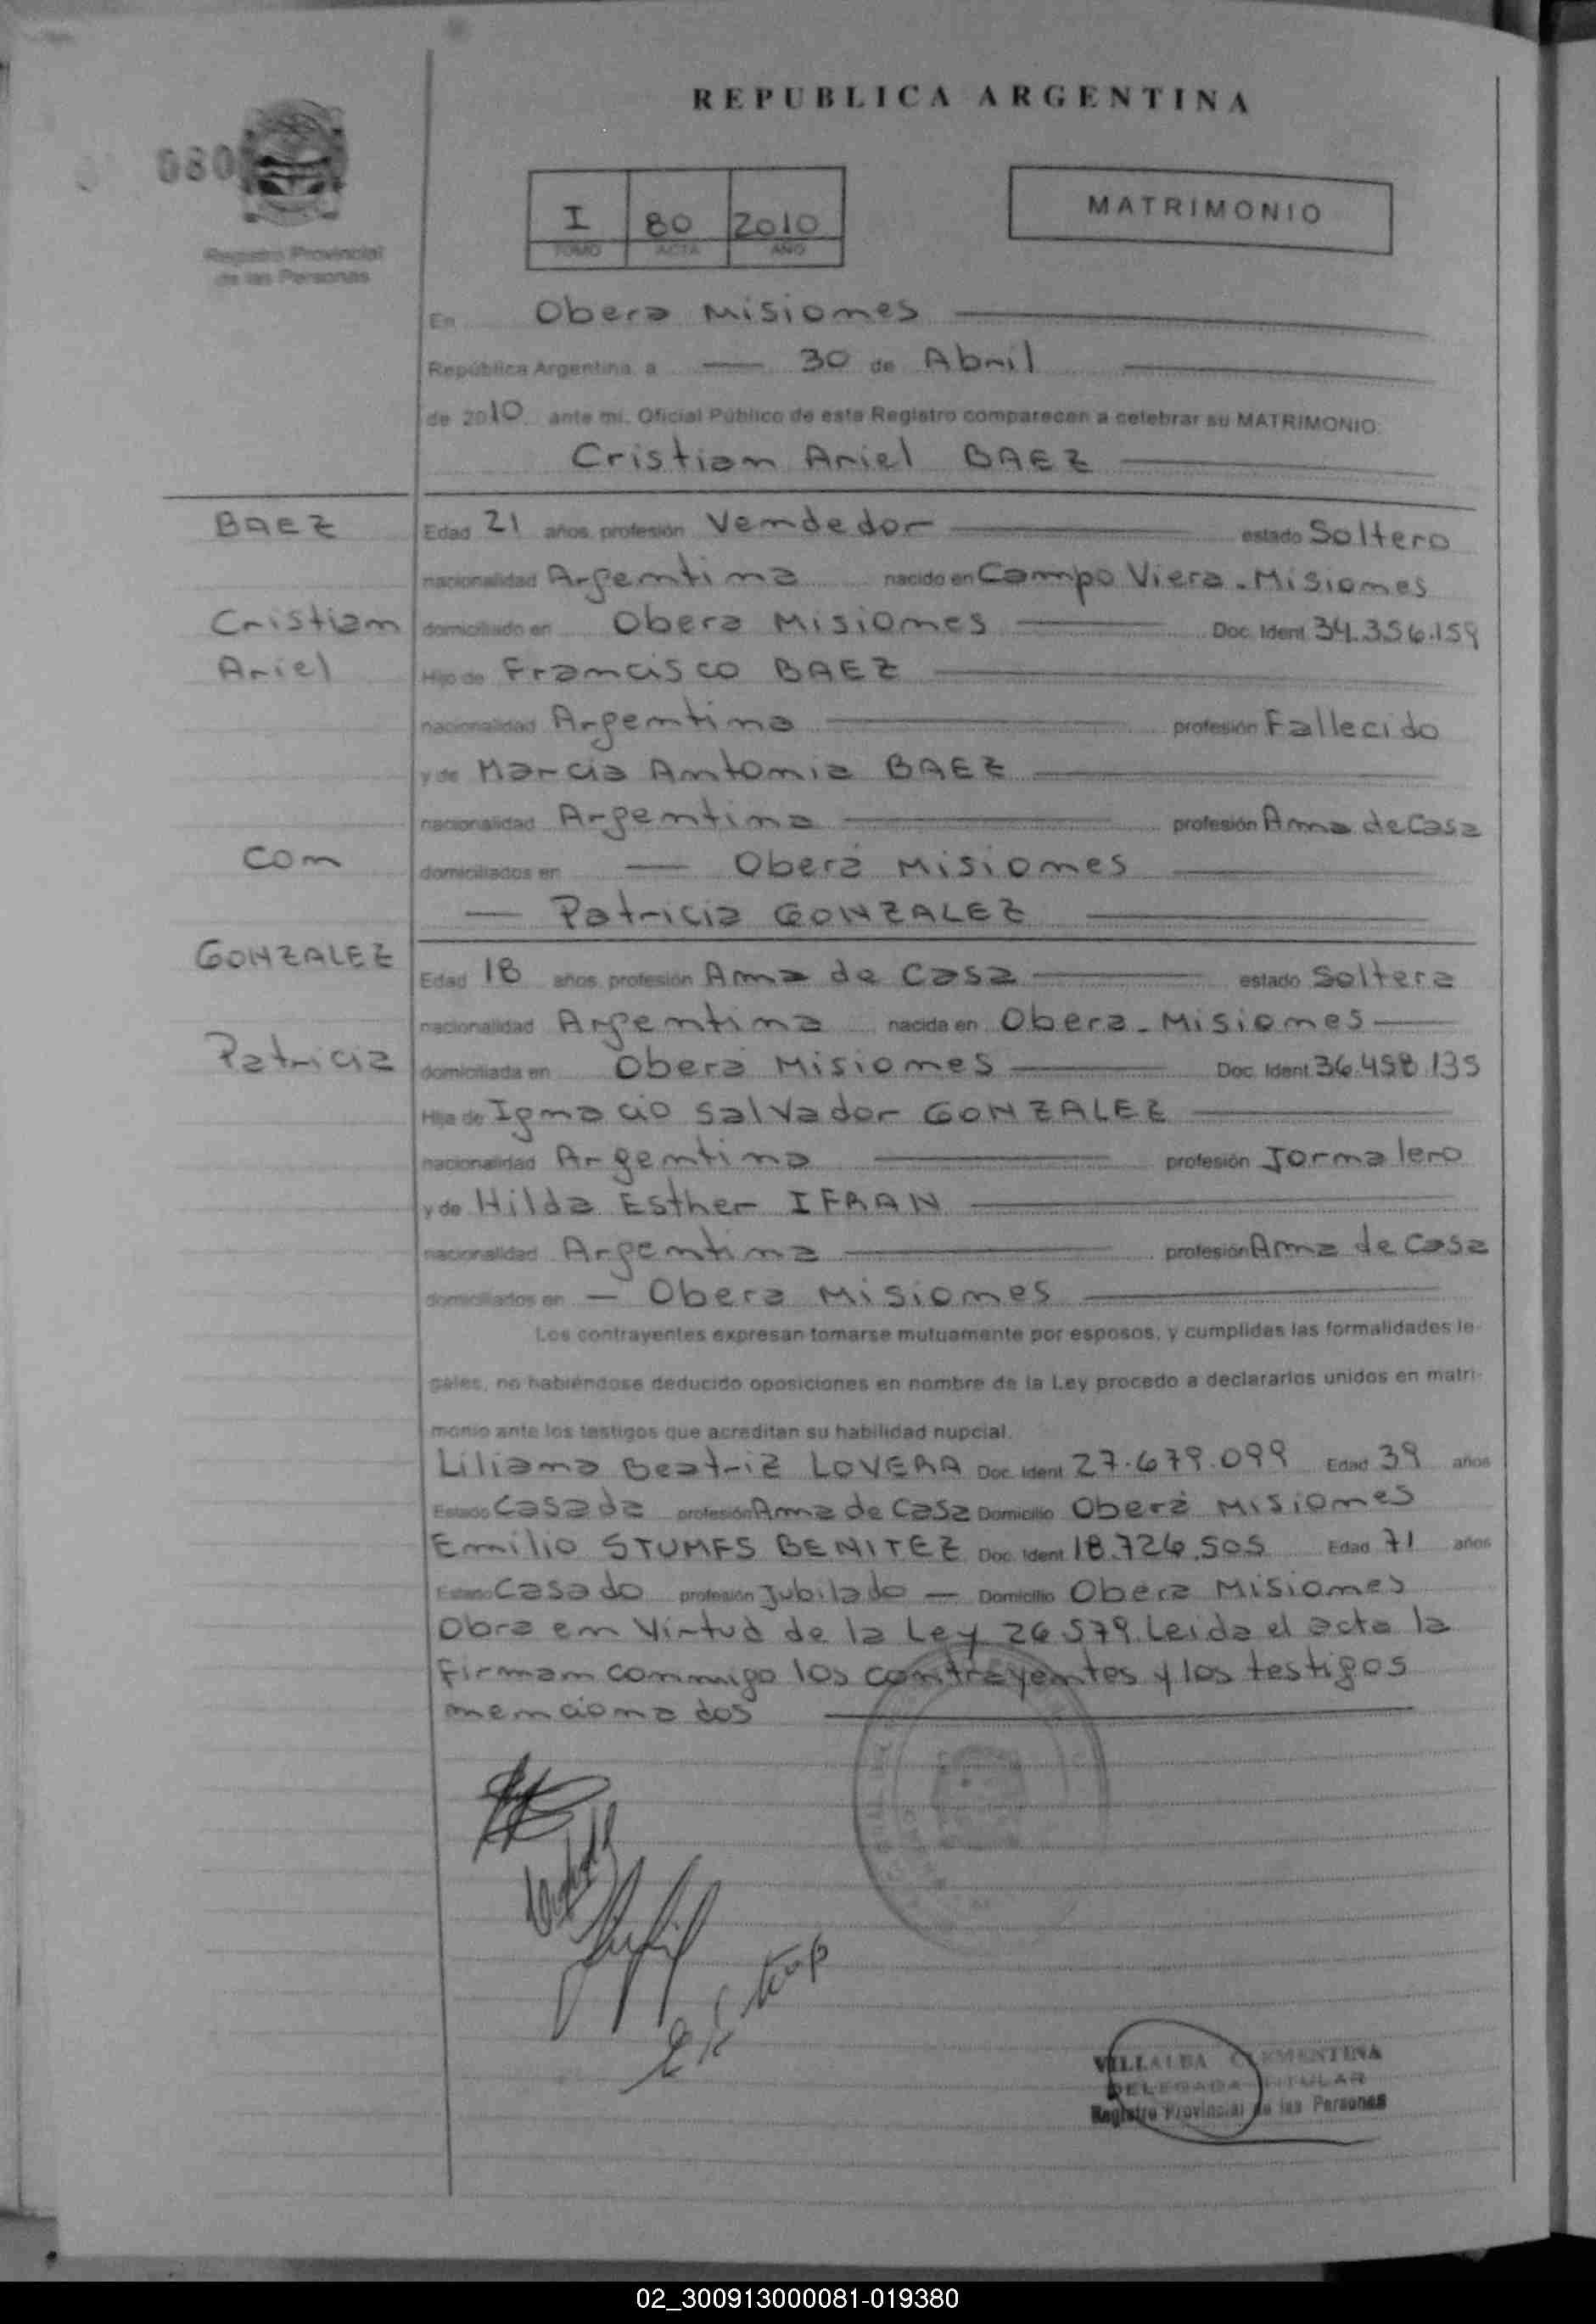 REPUBLICA ARGENTINA
080
Registro Provincial
de las Personas
I 80 2010
TOMO ACTA AÑO
MATRIMONIO
En Obera Misiones
República Argentina, a 30 de Abril
de 2010 ante mi, Oficial Público de este Registro comparecen a celebrar su MATRIMONIO:
Cristian Ariel BAEZ
BAEZ
Edad 21 años profesión Vendedor estado Soltero
nacionalidad Argentina nacido en Campo Viera - Misiones
Cristian
domiciliado en Obera Misiones Doc. Ident. 34.356.159
Ariel
Hijo de Francisco BAEZ
nacionalidad Argentina profesión Fallecido
y de Marcia Antonia BAEZ
nacionalidad Argentina profesión Ama de Casa
Con
domiciliados en Oberá Misiones
Patricia GONZALEZ
GONZALEZ
Edad 18 años profesión Ama de Casa estado Soltera
nacionalidad Argentina nacida en Obera - Misiones
Patricia
domiciliada en Oberá Misiones Doc. Ident. 36.458.135
Hija de Ignacio Salvador GONZALEZ
nacionalidad Argentina profesión Jornalero
y de Hilda Esther IFRAN
nacionalidad Argentina profesión Ama de Casa
domiciliados en Obera Misiones
Los contrayentes expresan tomarse mutuamente por esposos, y cumplidas las formalidades le-
gales, no habiéndose deducido oposiciones en nombre de la Ley procedo a declararlos unidos en matri-
monio ante los testigos que acreditan su habilidad nupcial.
Liliana Beatriz LOVERA Doc. Ident. 27.679.099 Edad 39 años
Estado Casada profesión Ama de Casa Domicilio Oberá Misiones
Emilio STUMFS BENITEZ Doc. Ident. 18.726.505 Edad 71 años
Estado Casado profesión Jubilado Domicilio Obera Misiones
Obra en Virtud de la Ley 26.579. Leida el acta la
firman conmigo los contrayentes y los testigos
mencionados
VILLALBA CLEMENTINA
DELEGADA TITULAR
Registro Provincial de las Personas
02_300913000081-019380